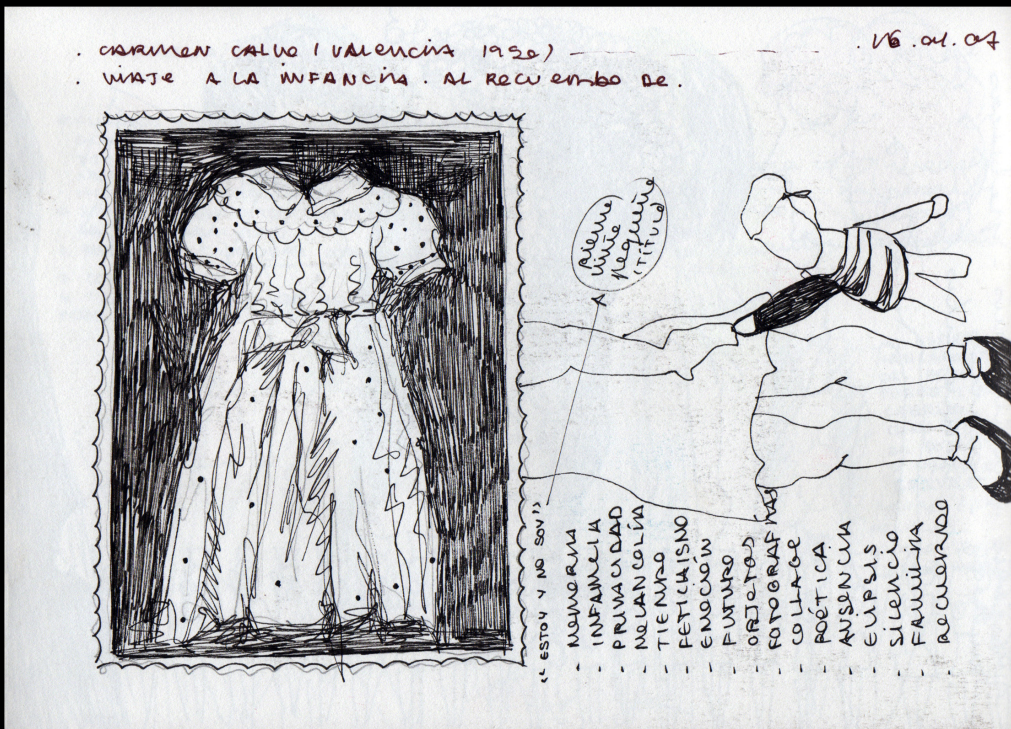 . CARMEN CALVO (VALENCIA 1950) . 16.01.07
. VIAJE A LA INFANCIA. AL RECUERDO DE.
niño
pequeño
(TÍTULO)
"ESTOY Y NO SOY"
- MEMORIA
- INFANCIA
- PRIVACIDAD
- MELANCOLÍA
- TIEMPO
- FETICHISMO
- EMOCIÓN
- FUTURO
- OBJETOS
- FOTOGRAFÍAS
- COLLAGE
- POÉTICA
- AUSENCIA
- ELIPSIS
- SILENCIO
- FAMILIA
- RECUERDO